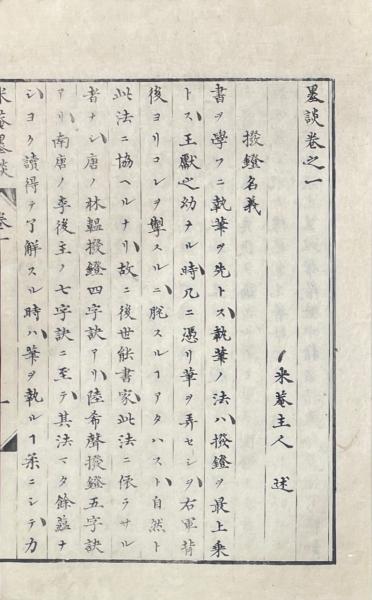 墨談卷之一
米菴主人 述
撥鐙名義
書ヲ學フニ執筆ヲ先トス執筆ノ法ハ撥鐙ヲ最上乘
トス王獻之幼ナル時几ニ憑リ筆ヲ弄セシヲ右軍背
後ヨリコレヲ掣スルニ脫スルヿアタハスト自然ト
此法ニ協ヘルナリ故ニ後世能書家此法ニ依ラサル
者ナシ唐ノ林韞撥鐙四字訣アリ陸希聲撥鐙五字訣
アリ南唐ノ李後主ノ七字訣ニ至テ其法マタ餘蘊ナ
シヨク讀得テ了解スル時ハ筆ヲ執ルヿ柔ニシテ力
米菴墨談 卷一 一